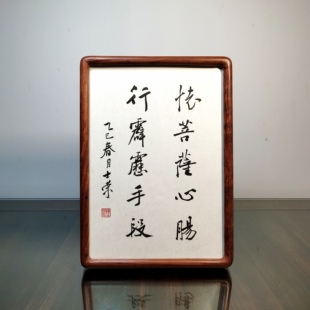 怀菩萨心肠
行霹雳手段
乙巳春月士荣